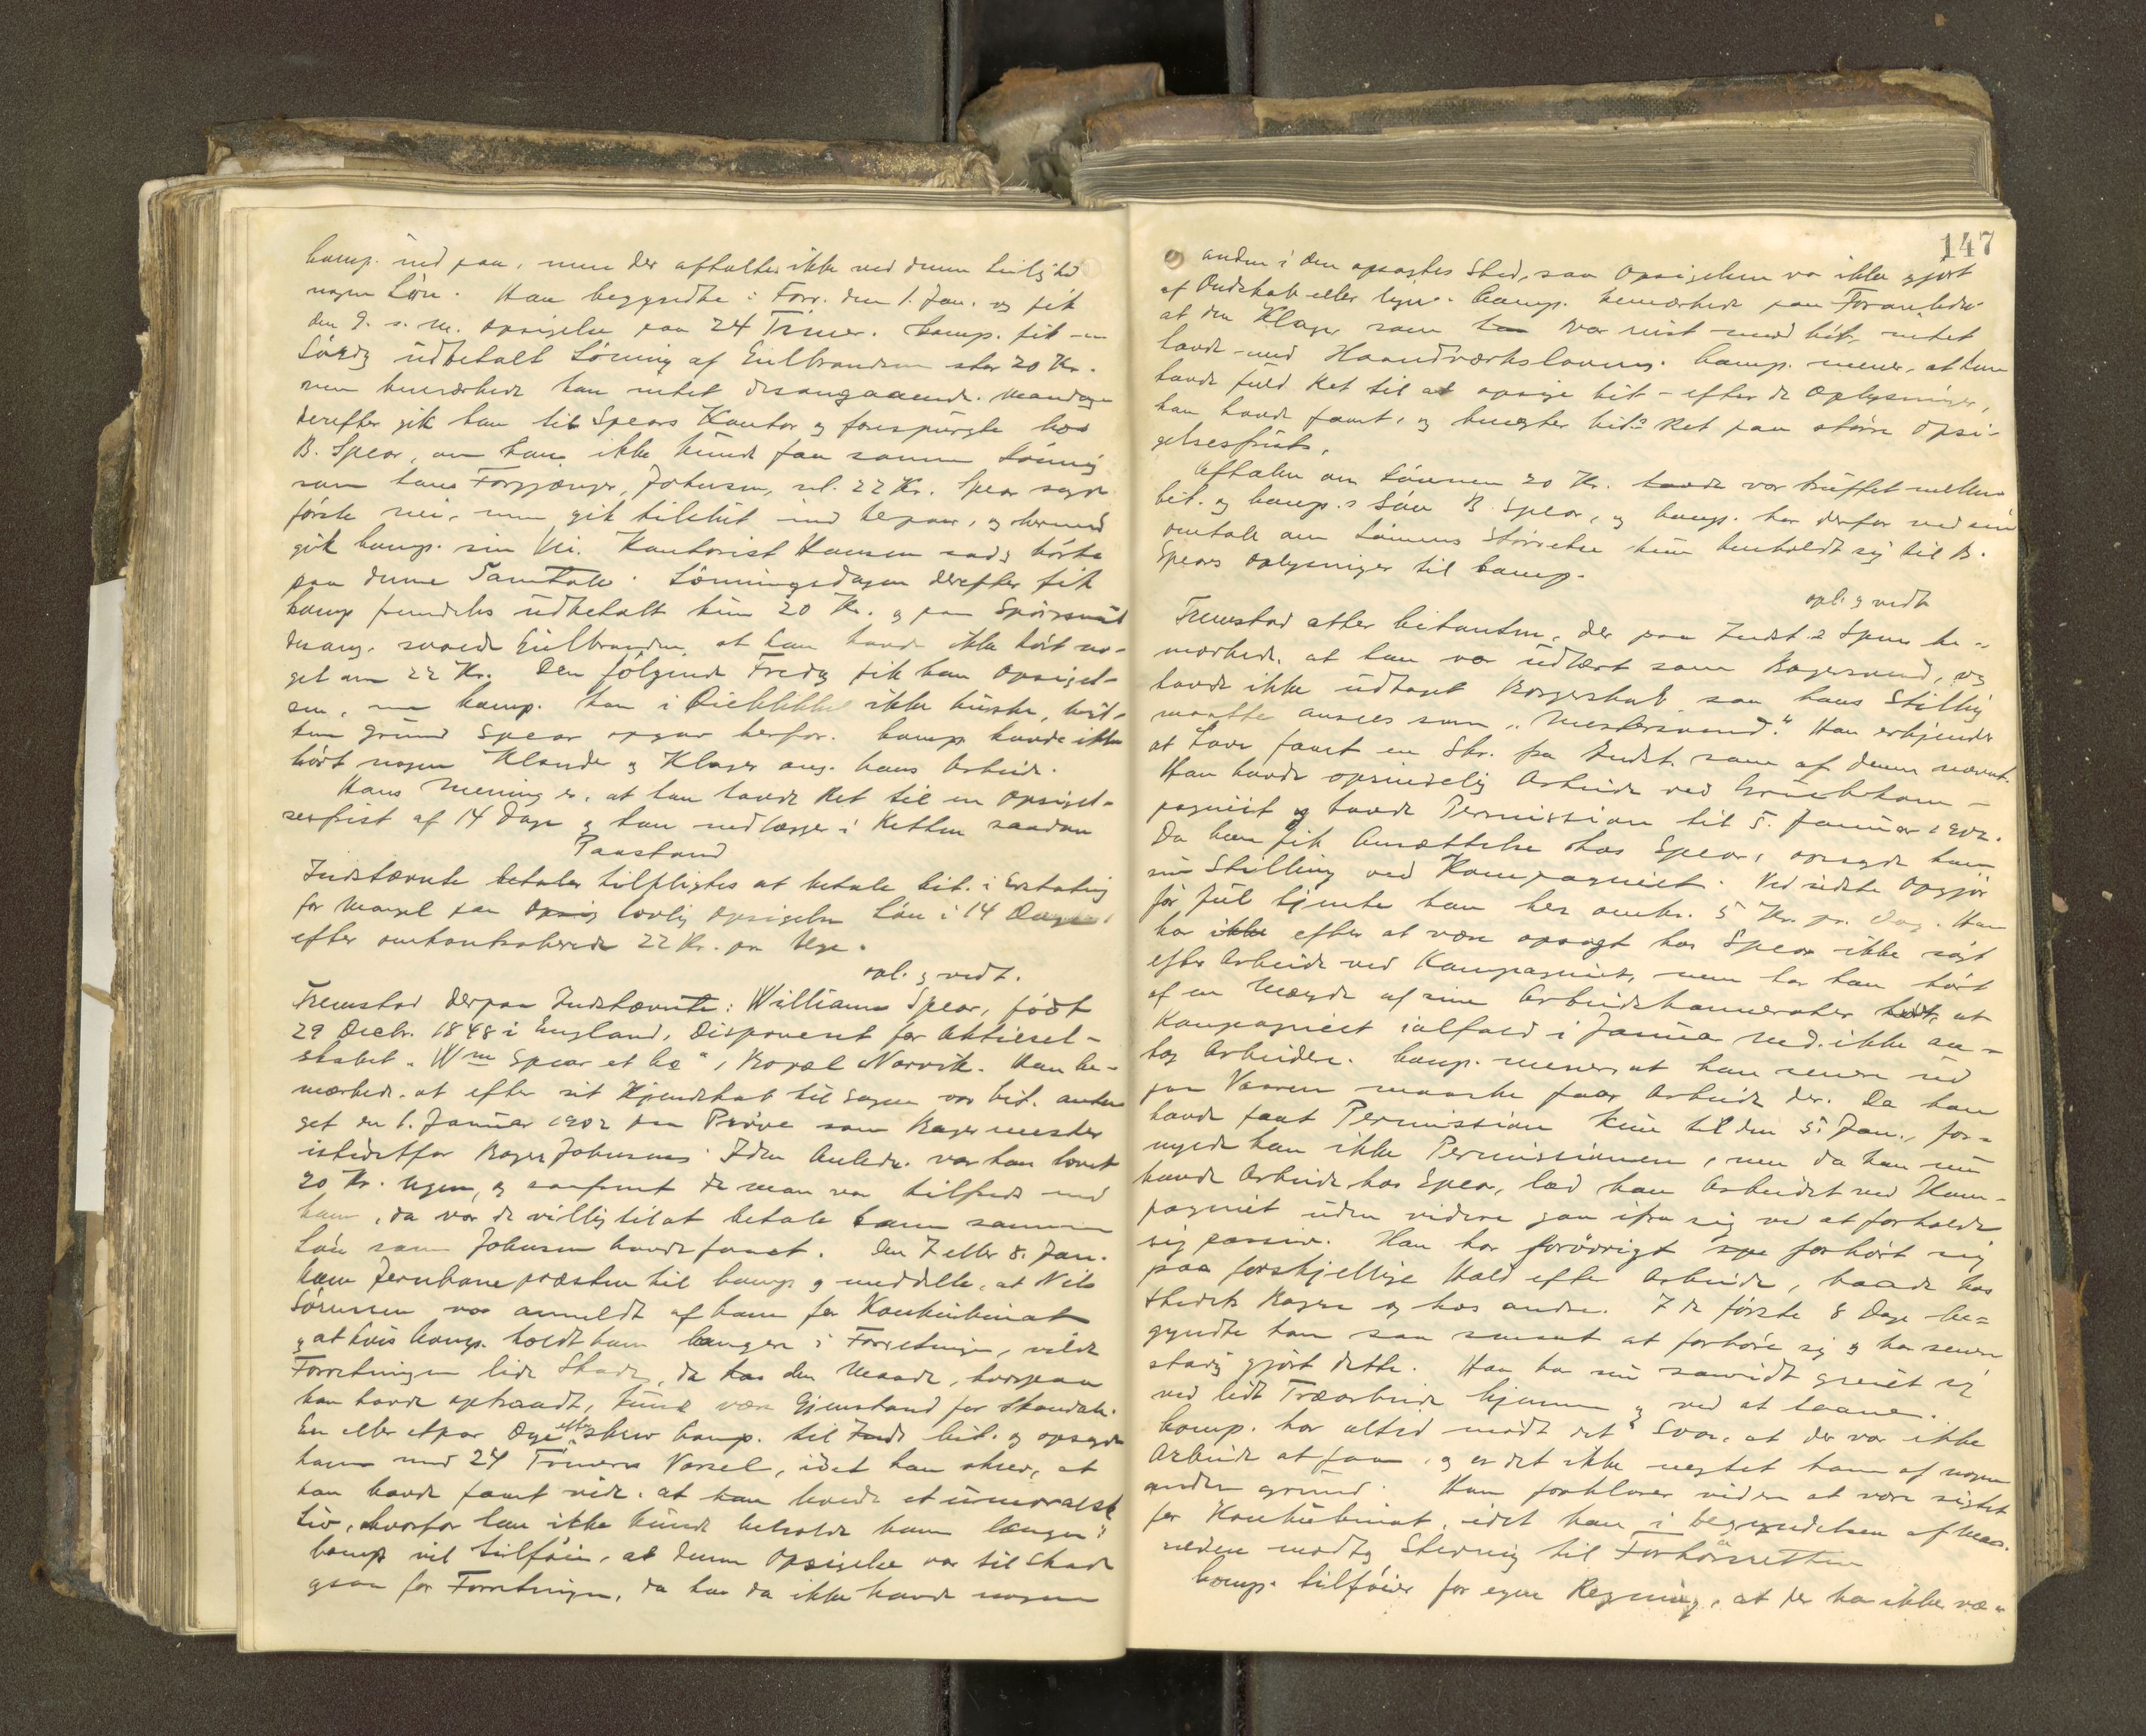 Comp. ind paa, men der aftaltes ikke ved denne Leilighed
nogen Løn. Han begyndte i Forr. den 1. Jan. og fik
den 9. s. m. opsigelse paa 24 Timer. Comp. fik en
Lørdag udbetalt Lønning af Gulbrandsen stor 20 Kr.
men bemærkede han intet desangaaende. Mandagen
derefter gik han til Spears Kontor og forespurgte hos
B. Spear, om han ikke kunde faa samme Lønning
som hans Forgjænger, Johnsen, nl. 22 Kr. Spear sagde
første nei, men gik tilslut ind derpaa, og hermed
gik Comp. sin Vei. Kontorist Hansen sad og hørte
paa denne Samtale. Lønningsdagen derefter fik
Comp fremdeles udbetalt kun 20 Kr. og paa Spørsmaal
desang. svarede Gulbrandsen, at han havde ikke hørt no-
get om 22 Kr. Den følgende Fredag fik han Opsigel-
sen, men Comp. kan i Øieblikket ikke huske, hvil-
ken Grund Spear opgav herfor. Comp havde ikke
hørt nogen Klander og Klager ang. hans Arbeide.
Hans Mening er, at han havde Ret til en Opsigel-
sesfrist af 14 Dage og han nedlægger i Retten saadan
Paastand
Indstævnte betaler tilpligtes at betale Cit. i Erstatning
for Mangel paa Opsig lovlig Opsigelse Løn i 14 Dage
efter omkontraherede 22 Kr. pr. Uge.
opl. og vedt.
Fremstod derpaa Indstævnte: William Spear, født
29 Decbr. 1848 i England, Disponent for Aktiesel-
skabet "Wm Spear et Co", Bopæl Narvik. Han be-
mærkede, at efter sit Kjendskab til Sagen var Cit. anta-
get en 1. Januar 1902 paa Prøve som Bagermester
istedetfor Bager Johnsen. I den Anledn. var han lovet
20 Kr. Ugen, og saafremt de man var tilfreds med
ham, da var de villig til at betale ham samme
Løn som Johnsen havde faaet. Den 7 eller 8. Jan.
kom Jernbanepræsten til Comp. og meddelte, at Nils
Sørensen var anmeldt af ham for Konkubinat
og at hvis Comp. holdt ham længere i Forretningen, vilde
Forretningen lide Skade, da han den Maade, hvorpaa
han havde optraadt, kunde være Gjenstand for Skandale.
En eller etpar Dage efter skrev Comp. til Inds Cit. og opsagde
ham med 24 Timers Varsel, idet han skrev, at
han havde faaet vide, at han levede et umoralsk
Liv, hvorfor han ikke kunde beholde ham længer.
Comp vil tilføie, at denne Opsigelse var til Skade
ogsaa for Forretningen, da han da ikke havde nogen
147
anden i den opsagtes Sted, saa Opsigelsen var ikke gjort
af Ondskab eller lign. Comp. bemærkede paa Foranledn.
at den Klager som han var uist med Cit. intet
havde med Haandværksloven. Comp. mener, at han
havde fuld Ret til at opsige Cit. efter de Oplysninger,
han havde faaet, og benegter Cit.s Ret paa større Opsi-
gelsesfrist.
Aftalen om Lønnen 20 Kr. havde var truffet mellem
Cit. og Comp.s Søn B. Spear, og Comp. har derfor ved sin
omtale om Lønnens Størrelse kun henholdt sig til B.
Spears Oplysninger til Comp.
opl. og vedt.
Fremstod atter Citanten, der paa Indst.s Spm. be-
mærkede, at han var udlært som Bagersvend, og
havde ikke udtaget Borgerskab, saa hans Stilling
maatte ansees som "Mestersvend". Han erkjender
at have faaet en Skr. fra Indst. som af denne nævnt.
Han havde oprindelig Arbeide ved Grubekom-
pagniet og havde Permission til 5. Januar 1902.
Da han fik Ansættelse hos Spear, opsagde han
sin Stilling ved Kompagniet. Ved sidste Opgjør
før Jul tjente han her omkr. 5 Kr. pr. Dag. Han
har ikke efter at være opsagt hos Spear ikke søgt
efter Arbeide ved Kompagniet, men har han hørt
af en Mængde af sine Arbeidskammerater hørt, at
Kompagniet ialfald i Januar Md. ikke an-
tog Arbeidere. Comp. mener, at han senere ud
paa Vaaren maaske faar Arbeide der. Da han
havde faaet Permission kun til den 5. Jan., for-
nyede han ikke Permissionen, men da han nu
havde Arbeide hos Spear, lod han Arbeidet ved Kom-
pagniet uden videre gaa ifra sig ved at forholde
sig passiv. Han har forøvrigt spe forhørt sig
paa forskjellige Hold efter Arbeide, baade hos
Stedets Bagere og hos andre. I de første 8 Dage be-
gyndte han saa smaat at forhøre sig og har senere
stadig gjort dette. Han har nu saavidt greiet sig
ved lidt Træarbeide hjemme og ved at laane.
Comp. har altid mødt det Svar, at der var ikke
Arbeide at faa, og er det ikke negtet ham af nogen
anden Grund. Han forklarer videre at være sigtet
for Konkubinat, idet han i Begyndelsen af Maa-
neden modtog Stevning til Forhørsretten
Comp. tilføier for egen Regning, at der har ikke væ-